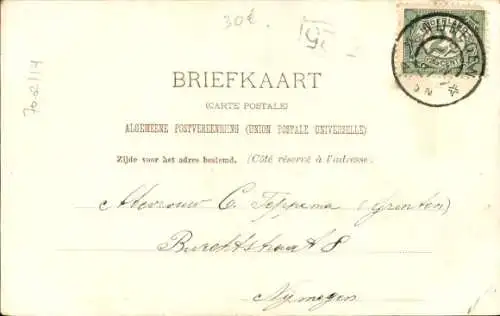 30€
BRIEFKAART
(CARTE POSTALE)
ALGEMEENE POSTVEREENIGING (UNION POSTALE UNIVERSELLE)
Zijde voor het adres bestemd. (Côté réservé à l'adresse.)
Mevrouw C. Teppema (Grinten)
Burchtstraat 8
Nymegen